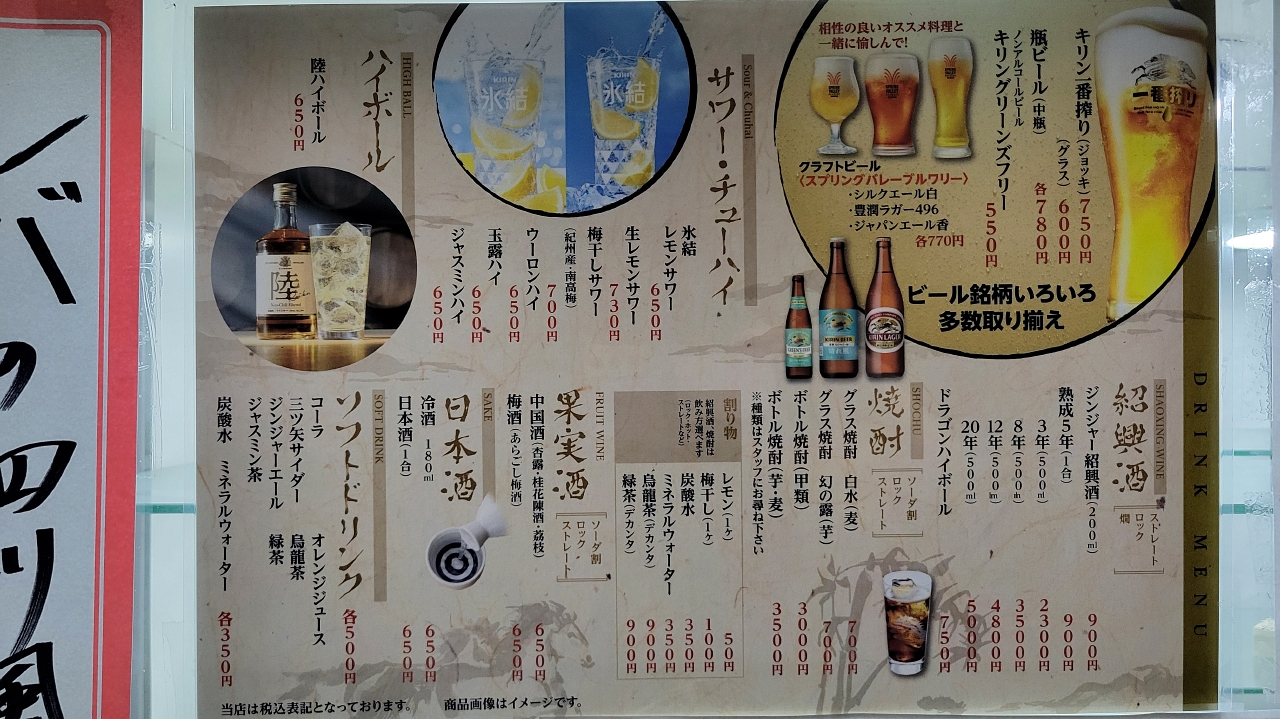 DRINK MENU
キリン一番搾り(ジョッキ)750円
(グラス)600円
瓶ビール(中瓶) 各780円
ノンアルコールビール
キリングリーンズフリー 550円
相性の良いオススメ料理と
一緒に愉しんで!
クラフトビール
〈スプリングバレーブルワリー〉
・シルクエール白
・豊潤ラガー496
・ジャパンエール香
各770円
ビール銘柄いろいろ
多数取り揃え
一番搾り
KIRIN BEER
KIRIN LAGER
サワー・チューハイ
Sour & Chuhai
KIRIN
氷結
KIRIN
氷結
氷結
レモンサワー 650円
生レモンサワー 730円
梅干しサワー
(紀州産・南高梅) 700円
ウーロンハイ 650円
玉露ハイ 650円
ジャスミンハイ 650円
ハイボール
HIGH BALL
陸ハイボール 650円
陸
紹興酒
SHAOXING WINE
ストレート
ロック
燗
ジンジャー紹興酒(200ml) 900円
熟成5年(1合) 900円
3年(500ml) 2300円
8年(500ml) 3500円
12年(500ml) 4800円
20年(500ml) 5000円
ドラゴンハイボール 750円
焼酎
SHOCHU
ソーダ割
ロック
ストレート
グラス焼酎 白水(麦) 700円
グラス焼酎 幻の露(芋) 700円
ボトル焼酎(甲類) 3000円
ボトル焼酎(芋・麦) 3500円
※種類はスタッフにお尋ね下さい
割り物
紹興酒・焼酎は
飲み方選べます
(ロック・ホット・
ストレートなど)
レモン(1ヶ) 50円
梅干し(1ヶ) 100円
炭酸水 350円
ミネラルウォーター 350円
烏龍茶(デカンタ) 900円
緑茶(デカンタ) 900円
果実酒
FRUIT WINE
ソーダ割
ロック・
ストレート
中国酒(杏露・桂花陳酒・茘枝) 650円
梅酒(あらごし梅酒) 650円
日本酒
SAKE
冷酒 180ml 650円
日本酒(1合) 650円
ソフトドリンク
SOFT DRINK
各500円
コーラ オレンジジュース
三ツ矢サイダー 烏龍茶
ジンジャーエール 緑茶
ジャスミン茶
炭酸水 ミネラルウォーター 各350円
当店は税込表記となっております。 商品画像はイメージです。